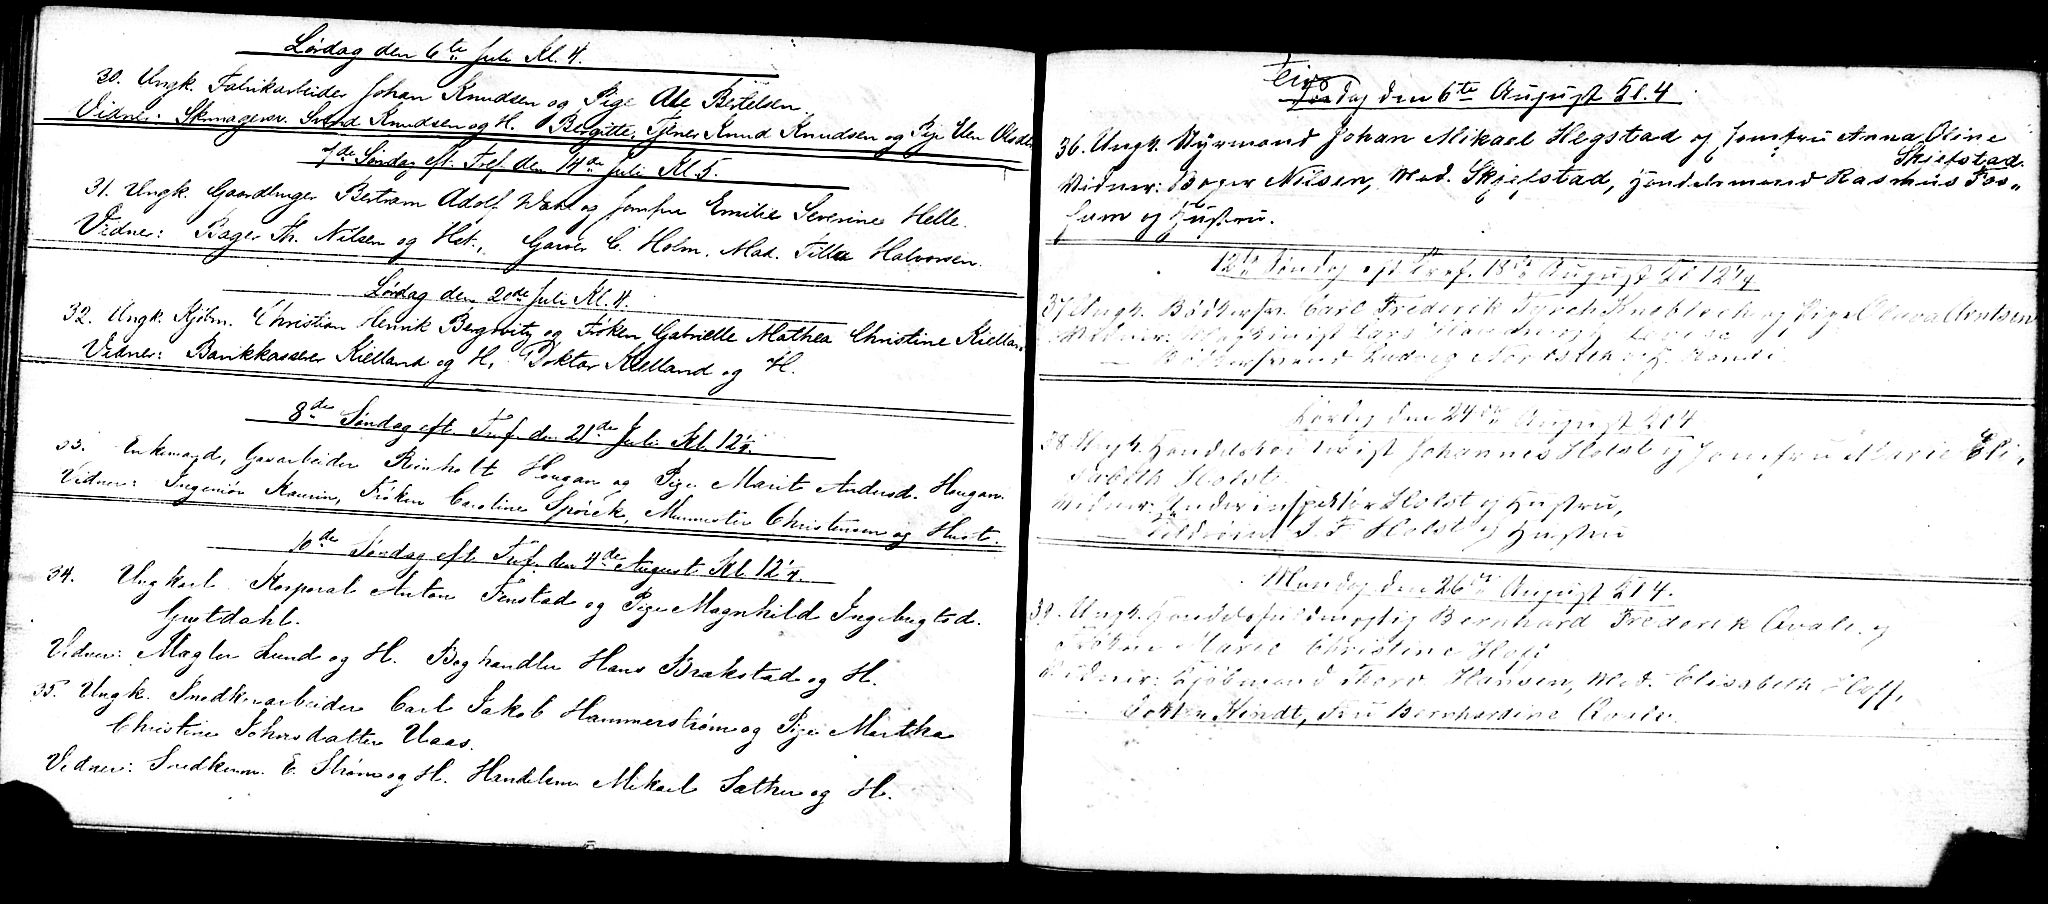 Lørdag den 6te Juli Kl. 4.
30. Ungk. Fabrikarbeider Johan Knudsen og Pige Ale Bertelsen
Vidner: Skomagersv. Svend Knudsen og H. Birgitte, Tjener Knud Knudsen og Pige Elen Olsdtr
7de Søndag eft. Tref. den 14de Juli Kl. 5.
31. Ungk. Gaardbruger Bertram Adolf Wahl og Jomfru Emilie Severine Helle.
Vidner: Bager Th. Nilsen og Hst., Garver C. Holm, Mad. Tilla Halvorsen.
Lørdag den 20de Juli Kl. 4.
32. Ungk. Kjøbm. Christian Henrik Bergwitz og Frøken Gabrielle Mathea Christine Kielland
Vidner: Bankkasserer Kielland og H., Doktor Kielland og H.
8de Søndag eft. Tref. den 21de Juli Kl. 12¼.
33. Enkemand, Gasarbeider Reinholt Hougan og Pige Marit Andersd. Hougan.
Vidner: Ingeniør Kaurin, Frøken Caroline Spörck, Murmester Christensen og Hust.
10de Søndag eft. Tref. den 4de August Kl. 12¼.
34. Ungkarl Korporal Anton Finstad og Pige Magnhild Ingebrigtsd.
Gustdahl.
Vidner: Mægler Lund og H. Boghandler Hans Brækstad og H.
35. Ungk. Snedkerarbeider Carl Jakob Hammerstrøm og Pige Martha
Christine Johnsdatter Uaas.
Vidner: Snedkerm. E. Strøm og H. Handelsm. Mikael Sæther og H.
Tirsdag den 6te August Kl. 4.
36. Ungk. Styrmand Johan Mikael Hegstad og Jomfru Anna Oline
Skjefstad.
Vidner: Bager Nilsen, Mad. Skjefstad, Handelsmand Rasmus Fos„
sum og Hustru.
12te Søndag eft. Tref. 18de August Kl 12¼
37. Ungk. Bødkersv. Carl Frederik Tyrch Knobloch og Pige Oluva Arntsen
Vidner: Lars og Lovise
Ludvig Nordsteh og H.
Lørdag den 24de August Kl 4
38. Ungk. Handelsbetjent Johannes Holst og Jomfru Marie Eli„
sabeth Holst
Vidner: Underinspektør Holst og Hustru,
J. F. Holst og Hustru
Mandag den 26de August Kl 4.
39. Ungk. Handelsfuldmægtig Bernhard Frederik Qvale og
Frøken Marie Christine Hoff
Vidner: Kjøbmand Thore Hansen, Mad. Elisabeth Hoff,
Doktor Kindt, Fru Bernhardine Qvale.